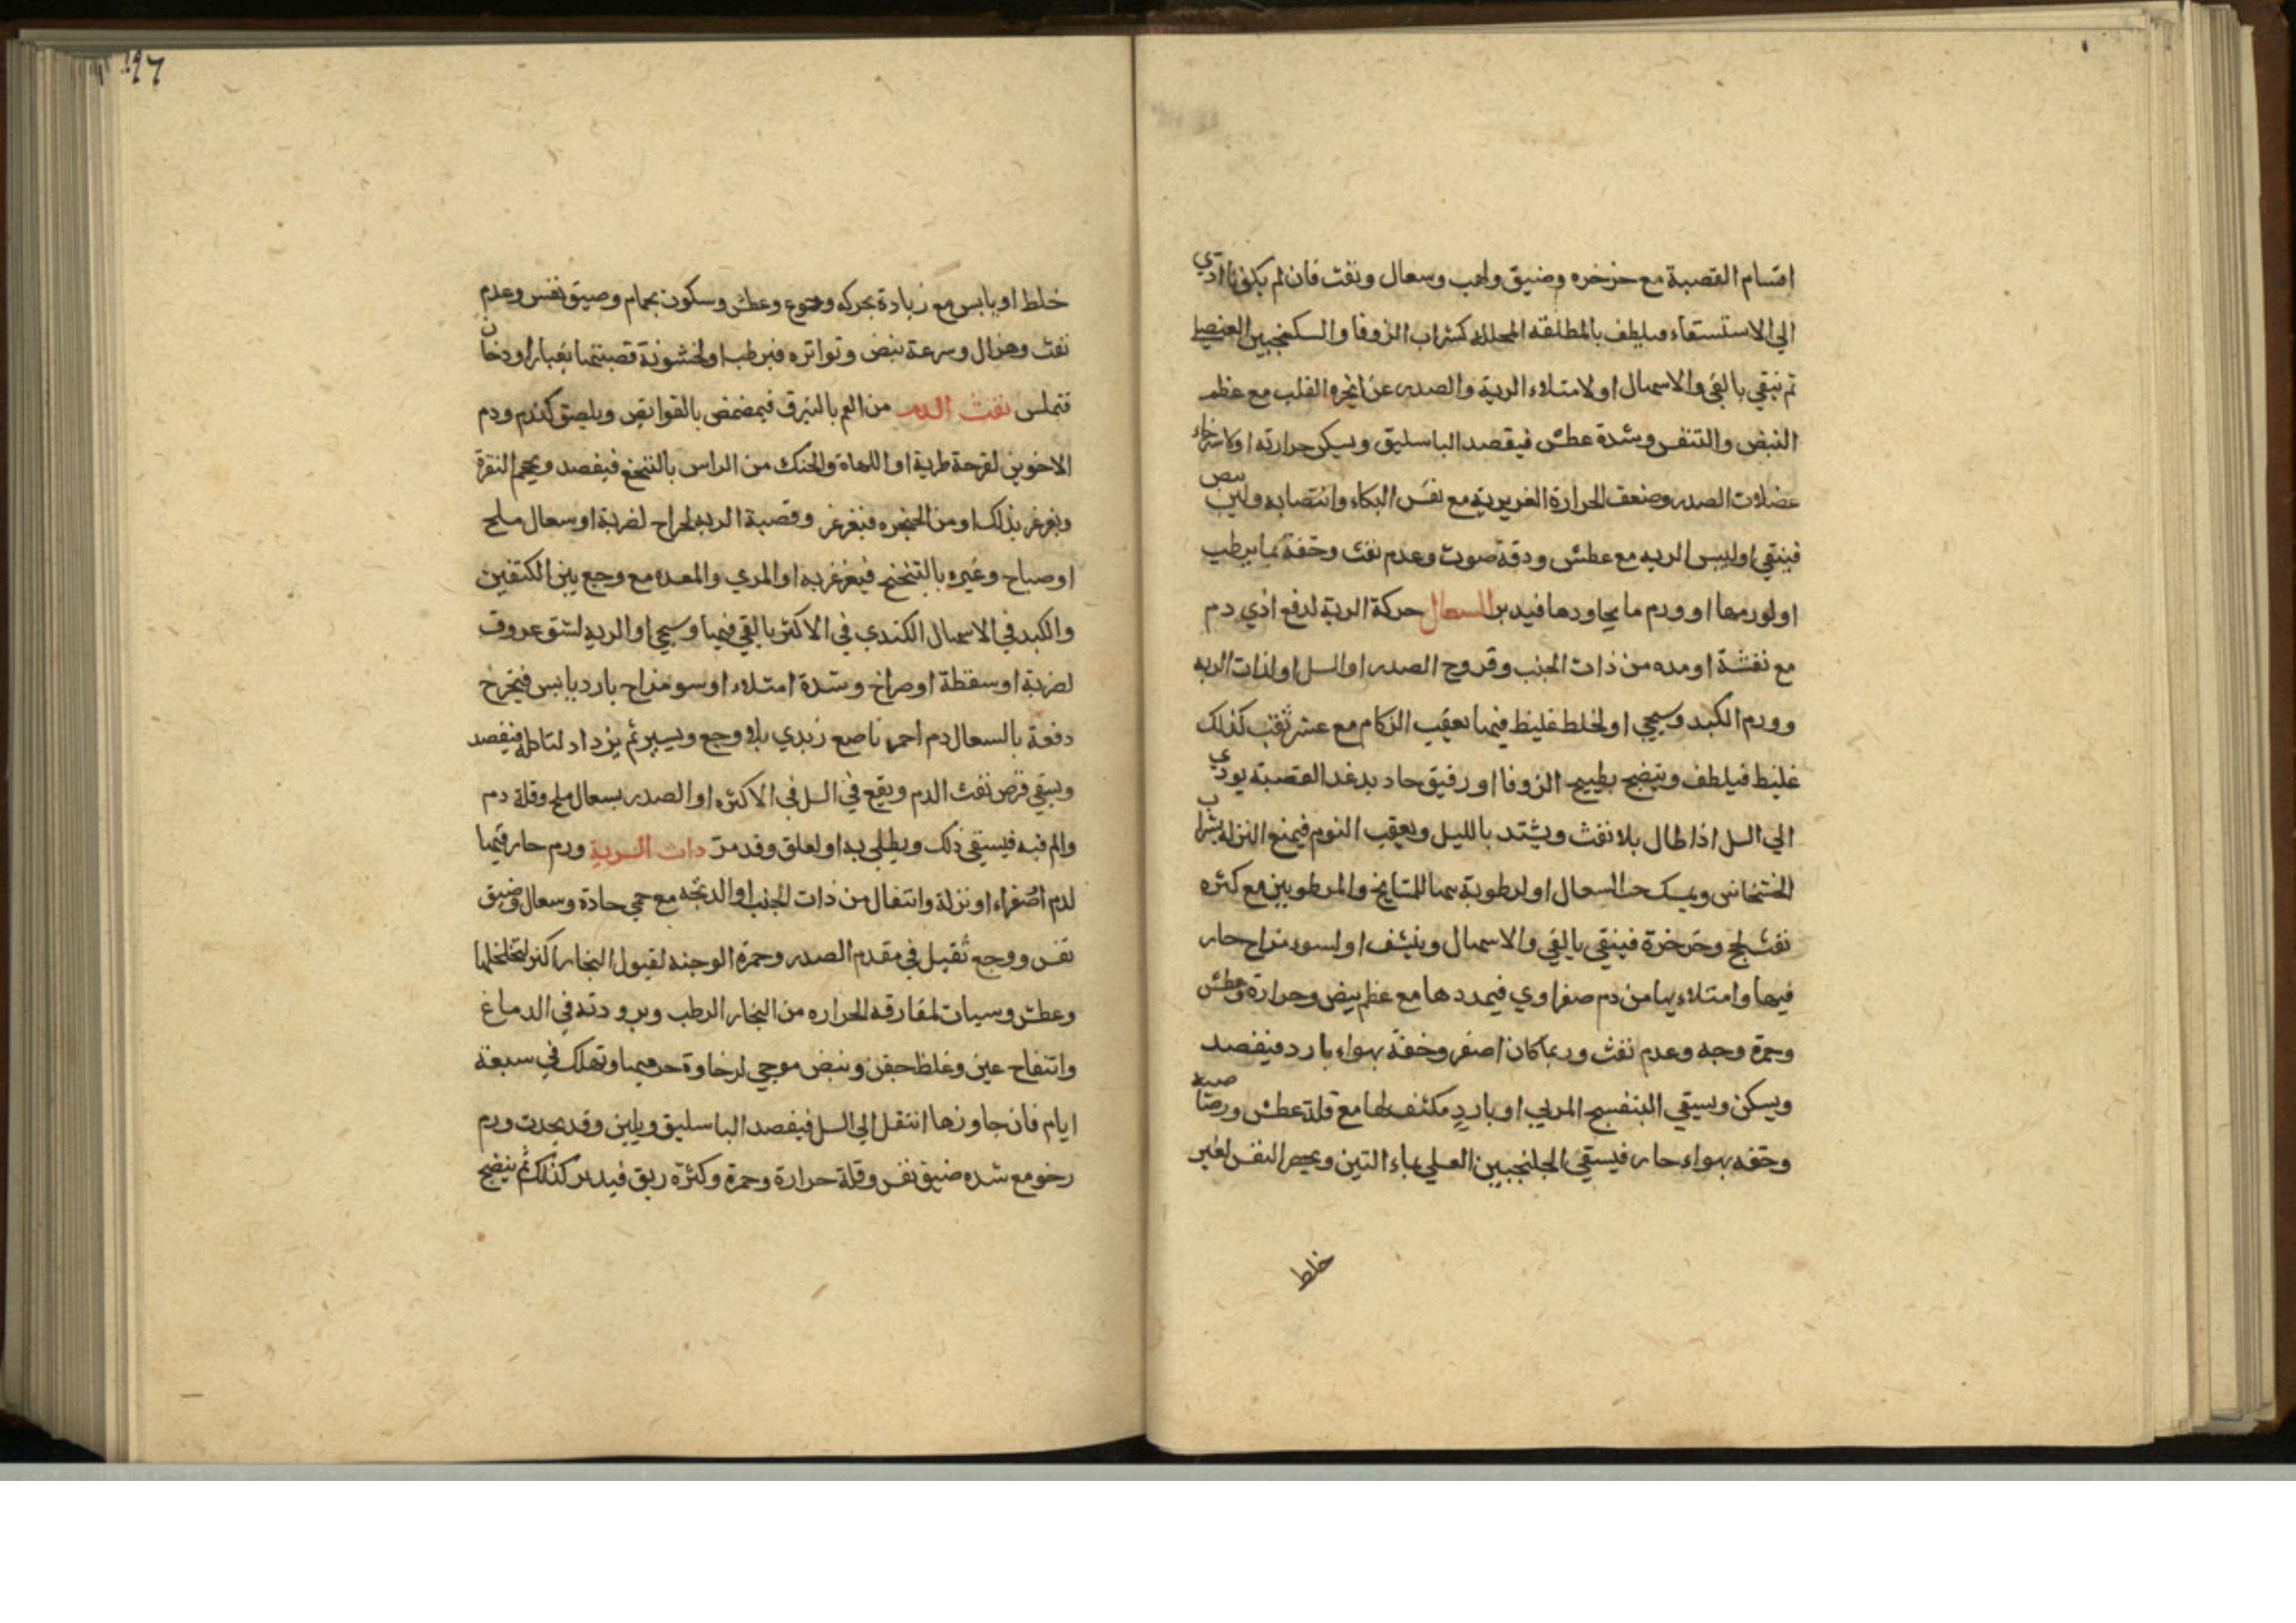 اقسام القصبة مع خرخره وضيق ولهب وسعال ونفث فان لم يكن نا ادي
الي الاستسقاء فيلطف بالمطلقه المحلله كشراب الزوفا والسكنجبين العنصلي
ثم ينقي بالقي والاسهال او لامتلاء الرية والصدر عن ابخره القلب مع عظم
النبض والتنفس وشدة عطش فيفصد الباسليق ويسكن حرارته او لاسترخاء
عضلات الصدر وضعف الحرارة الغريزية مع نفس البكاء وانتصابه ولين نبض
فينقي او ليبس الريه مع عطش ودقة صوت وعدم نفث وخفة بما يرطب
او لورمها او ورم ما يجاورها فيدبر السعال حركة الرية لدفع اذي دم
مع نفثة او مده من ذات الجنب وقروح الصدر او السل او لذات الريه
وورم الكبد وسيجي او لخلط غليظ فيها يعقب الزكام مع عسر نفث كذلك
غليظ فيلطف وينضج بطبيخ الزوفا او رقيق حاد يدغدغ القصبة يودي
الي السل اذا طال بلا نفث ويشتد بالليل ويعقب النوم فيمنع النزله بشراب
الخشخاش ويمسك حب السعال او لرطوبة سما للمشايخ والمرطوبين مع كثره
نفث بلج وخرخرة فينقي بالقي والاسهال وينشف او لسوء مزاج حار
فيها وامتلاء بها من دم صفراوي فيمددها مع عظم نبض وحرارة وعطش
وحمرة وجه وعدم نفث وربما كان اصفر وخفة بهواء بارد فيفصد
ويسكن ويسقي البنفسج المربي او بارد مكثف لها مع قلة عطش ورصاصية
وخفه بهواء حار فيسقي الجلنجبين العسلي بماء التين ويحصر النفس لغير
خلط
خلط او يابس مع زيادة بحركه وجوع وعطش وسكون بحمام وضيق نفس وعدم
نفث وهزال وسرعة نبض وتواتره فيرطب او لخشونة قصبتها بغبار او دخان
فتملس نفث الدم من الفم بالتبزق فيمضمض بالقوابض ويلصق كندم ودم
الاخوين لقرحة طرية او اللهاة والحنك من الراس بالتنخع فيفصد ويحجم النقرة
ويغرغر بذلك او من الحنجره فيغرغر وقصبة الريه لجراح لضربة او سعال ملح
او صباح وغيره بالتنحنح فيغرغر به او المري والمعده مع وجع بين الكتفين
والكبد في الاسهال الكندي في الاكثر بالقي فيهما وسيجي او الريه لشق عروق
لضربة او سقطة او صراخ وشدة امتلاء او سو مزاج بارد يابس فيخرج
دفعة بالسعال دم احمر ناصع زبدي بلا وجع ويسير ثم يزداد لتاكله فيفصد
ويسقي قرص نفث الدم ويقع في السل في الاكثره او الصدر بسعال ملح وقلة دم
والم فيه فيسقي ذلك ويطلي به او لعلق وقد مرت ذات الرية ورم حار فيها
لدم اصفراء او نزلة وانتقال من ذات الجنب او الذبحه مع حمي حادة وسعال وضيق
نفس ووجع ثقيل في مقدم الصدر وحمرة الوجنه لقبول البخار اكثر لتخلخلها
وعطش وسبات لمفارقه الحراره من البخار الرطب وبرودته في الدماغ
وانتفاح عين وغلظ جفن ونبض موجي لرخاوة جرميها وتهلك في سبعة
ايام فان جاوزها انتقل الي السل فيفصد الباسليق ويلين وقد يحدث ورم
رخو مع شده ضيق نفس وقلة حرارة وحمرة وكثرة ريق فيدبر كذلك ثم ينضج